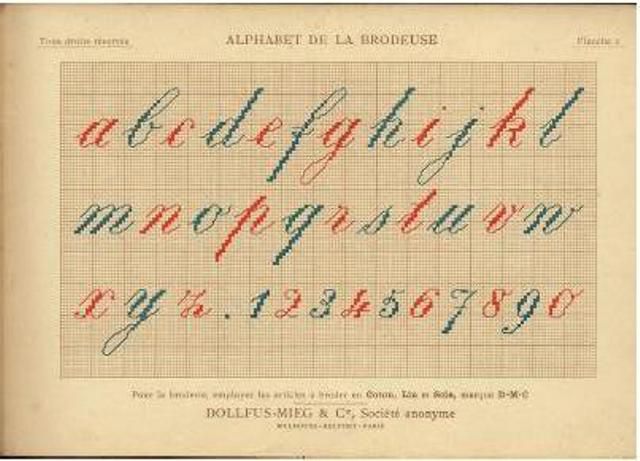 Tous droits réservés
ALPHABET DE LA BRODEUSE
Planche 2
a b c d e f g h i j k l
m n o p q r s t u v w
x y z . 1 2 3 4 5 6 7 8 9 0
Pour la broderie, employez les articles à broder en Coton, Lin et Soie, marque D·M·C
DOLLFUS-MIEG & Cie, Société anonyme
MULHOUSE-BELFORT-PARIS